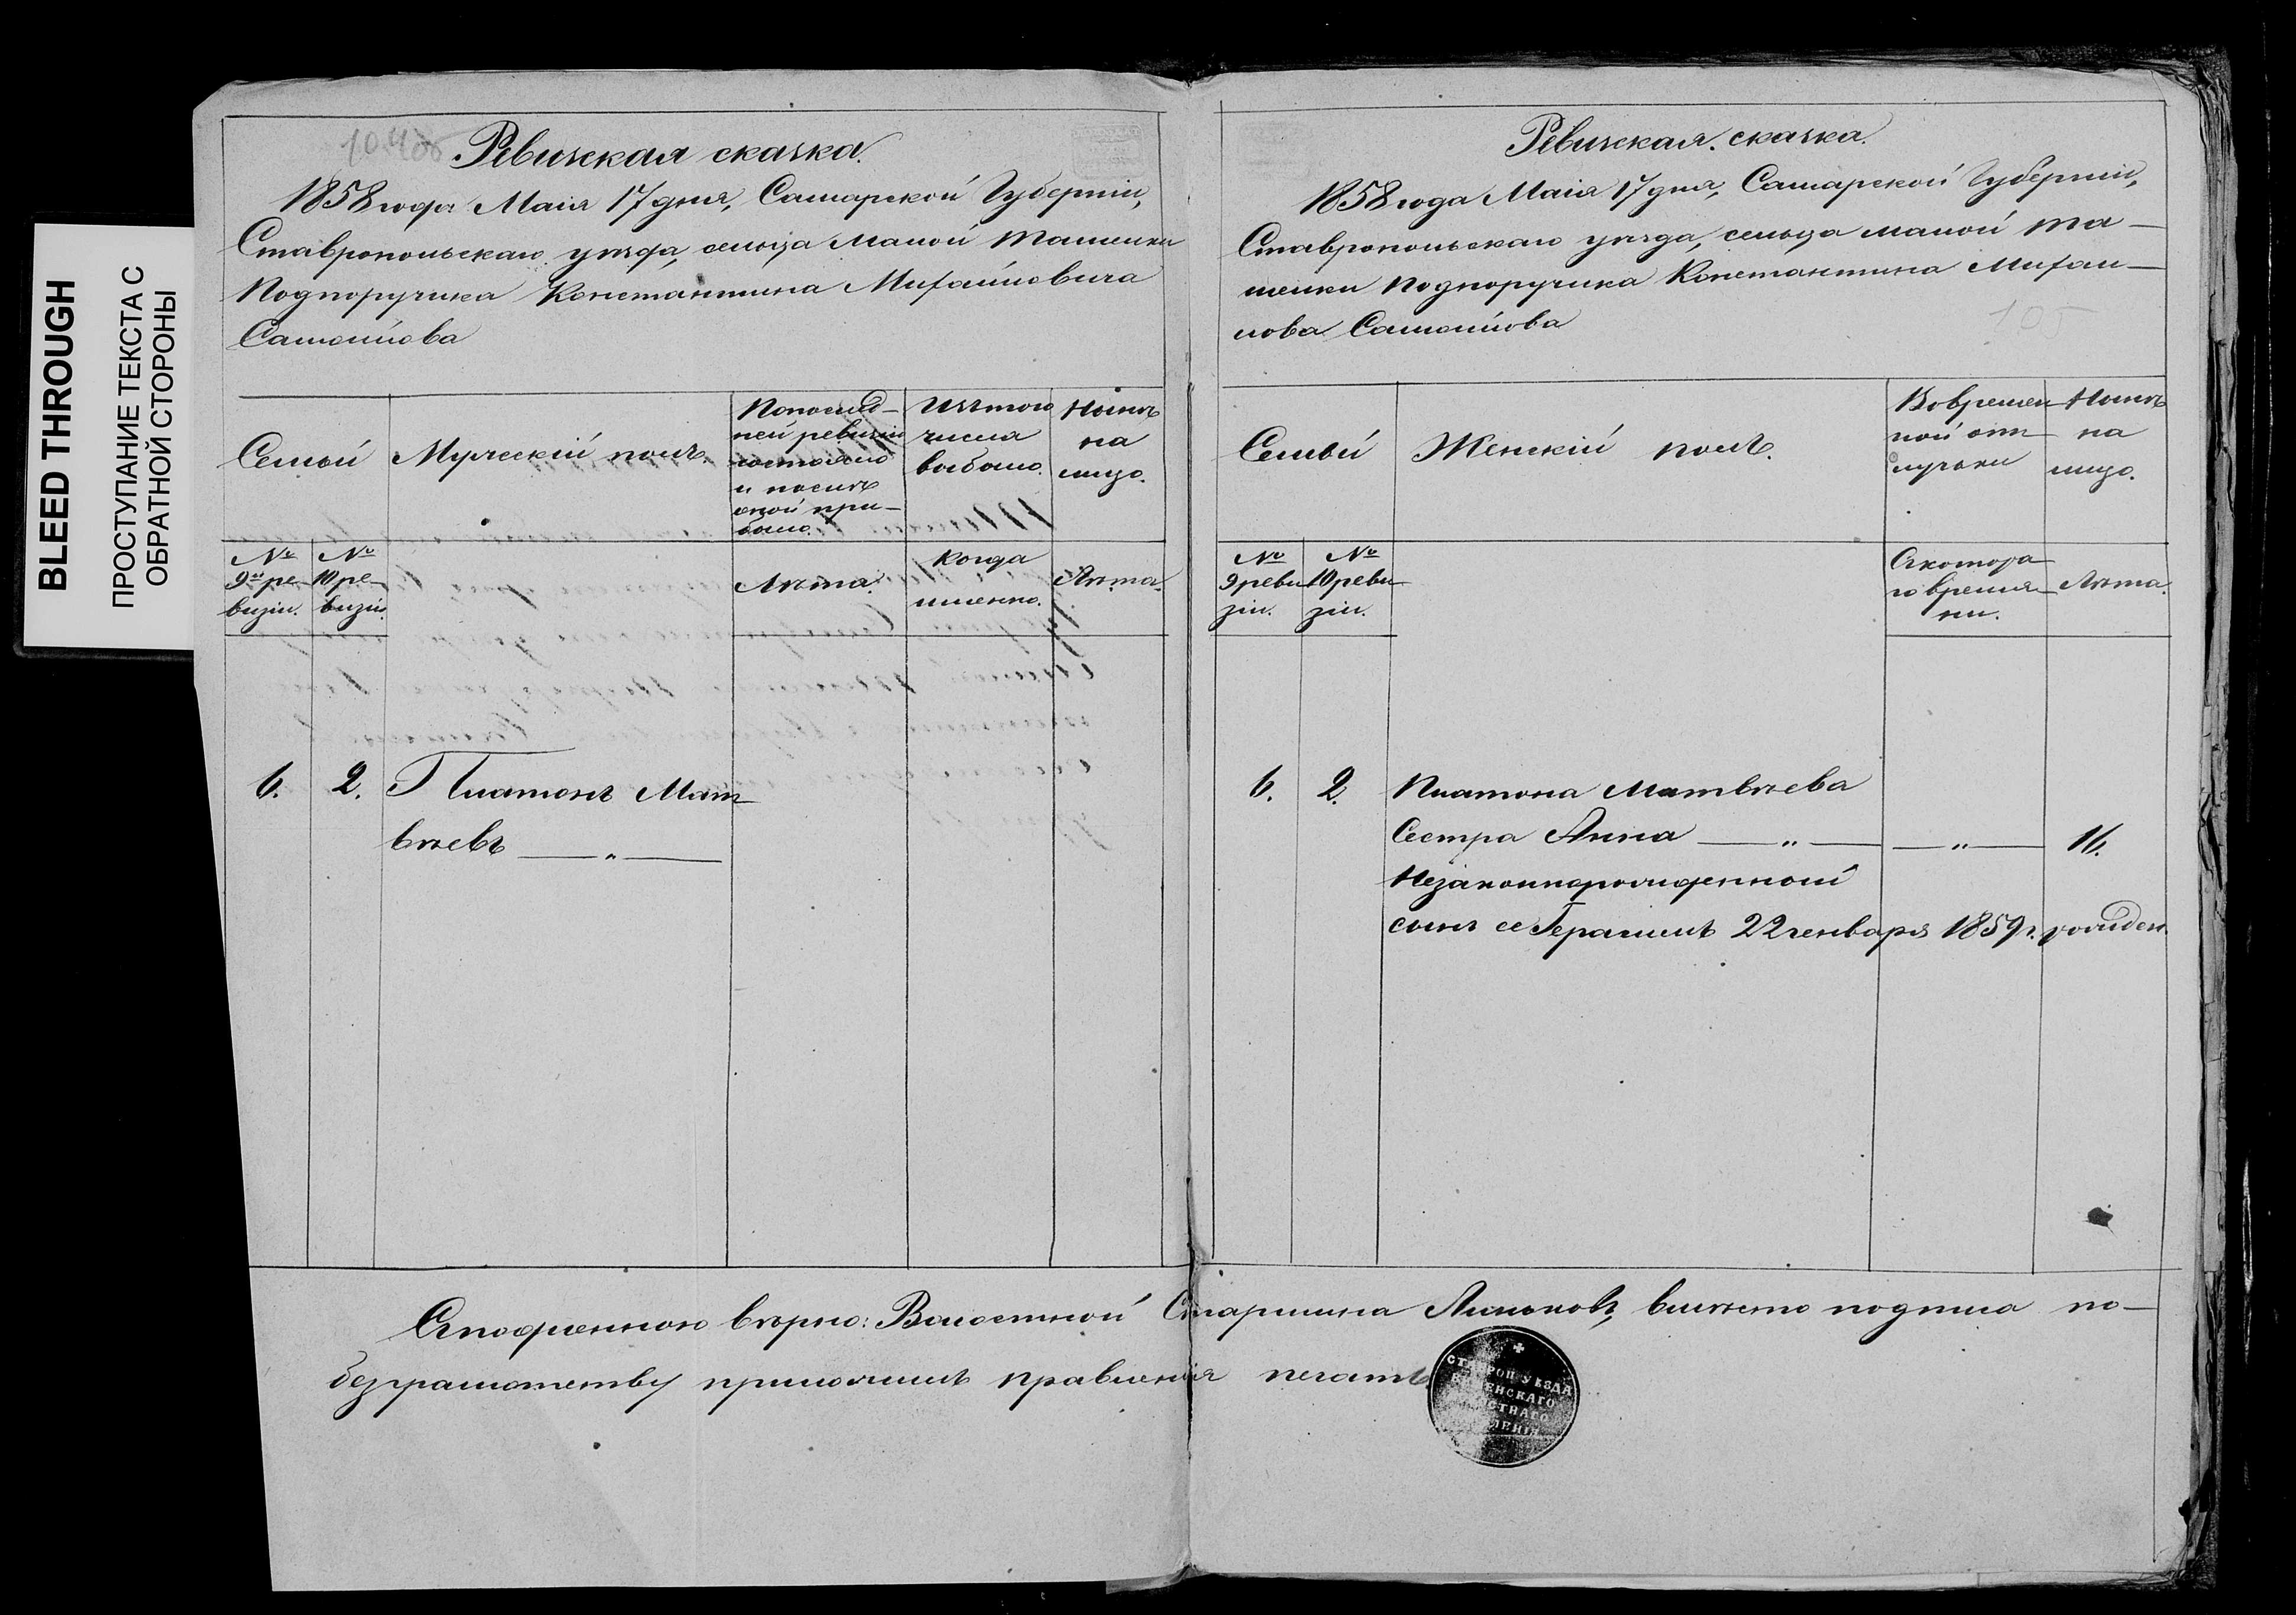 BLEED THROUGH
ПРОСТУПАНИЕ ТЕКСТА С
ОБРАТНОЙ СТОРОНЫ
Ревизская сказка.
1858 года Маія 17 дня, Самарской Губерніи,
Ставропольскаго уѣзда, сельца Малой Ташелки
Подпоручика Константина Михайловича
Самойлова
Семьи
Мужескій полъ.
По послѣд-
ней ревизіи
состояло
и послѣ
оной при-
было.
Изъ того
числа
выбыло.
Нынѣ
на
лицо.
№
9й ре-
визіи.
№
10 ре-
визіи.
Лѣта.
Когда
именно.
Лѣта.
6. 2. Платонъ Мат-
вѣевъ — „ —
Ревизская сказка.
1858 года Маія 17 дня, Самарской Губерніи,
Ставропольскаго уѣзда, сельца Малой Та-
шелки Подпоручика Константина Михаи-
лова Самойлова
105
Семьи
Женскій полъ.
Во времен-
ной от-
лучки
Нынѣ
на
лицо.
№
9 реви-
зіи.
№
10 реви-
зіи.
Съ котора-
го време-
ни.
Лѣта.
6. 2. Платона Матвѣева
Сестра Анна — „ — — „ — 16.
Незаконнорожденный
сынъ ее Герасимъ 22 генваря 1859 г. рожден.
Съ подленною вѣрно: Волостной Старшина вмѣсто подписа по-
безграмотству приложилъ правленія печать
СТАВРОП УѢЗДА